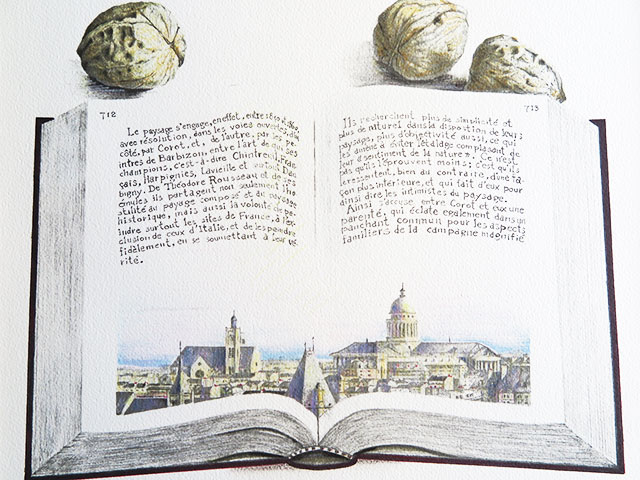 712
Le paysage s'engage, en effet, entre 1830 et 1860,
avec résolution, dans les voies ouvertes, d'un
côté, par Corot, et, de l'autre, par les pe
intres de Barbizon. entre l'art de qui ses
champions, c'est-à-dire Chintreuil, Fran
çais, Harpignies, Lavieille et surtout Dau
bigny. De Théodore Rousseau et de ses
émules ils partagent non seulement l'ho
stilité au paysage composé et au paysage
historique, mais aussi la volonté de pe
indre surtout les sites de France, à l'ex
clusion de ceux d'Italie, et de les peindre
fidèlement, en se soumettant à leur vé
rité.
713
Ils recherchent plus de simplicité et
plus de naturel dans la disposition de leur
paysage, plus d'objectivité aussi, ce qui
les amène à éviter l'étalage complaisant de
leur « sentiment de la nature ». Ce n'est
pas qu'ils l'éprouvent moins: c'est qu'ils
ressentent, bien au contraire, d'une fa
çon plus intérieure, et qui fait d'eux pour
ainsi dire les intimistes du paysage.
Ainsi s'accuse entre Corot et eux une
parenté, qui éclate également dans un
penchant commun pour les aspects
familiers de la campagne magnifié